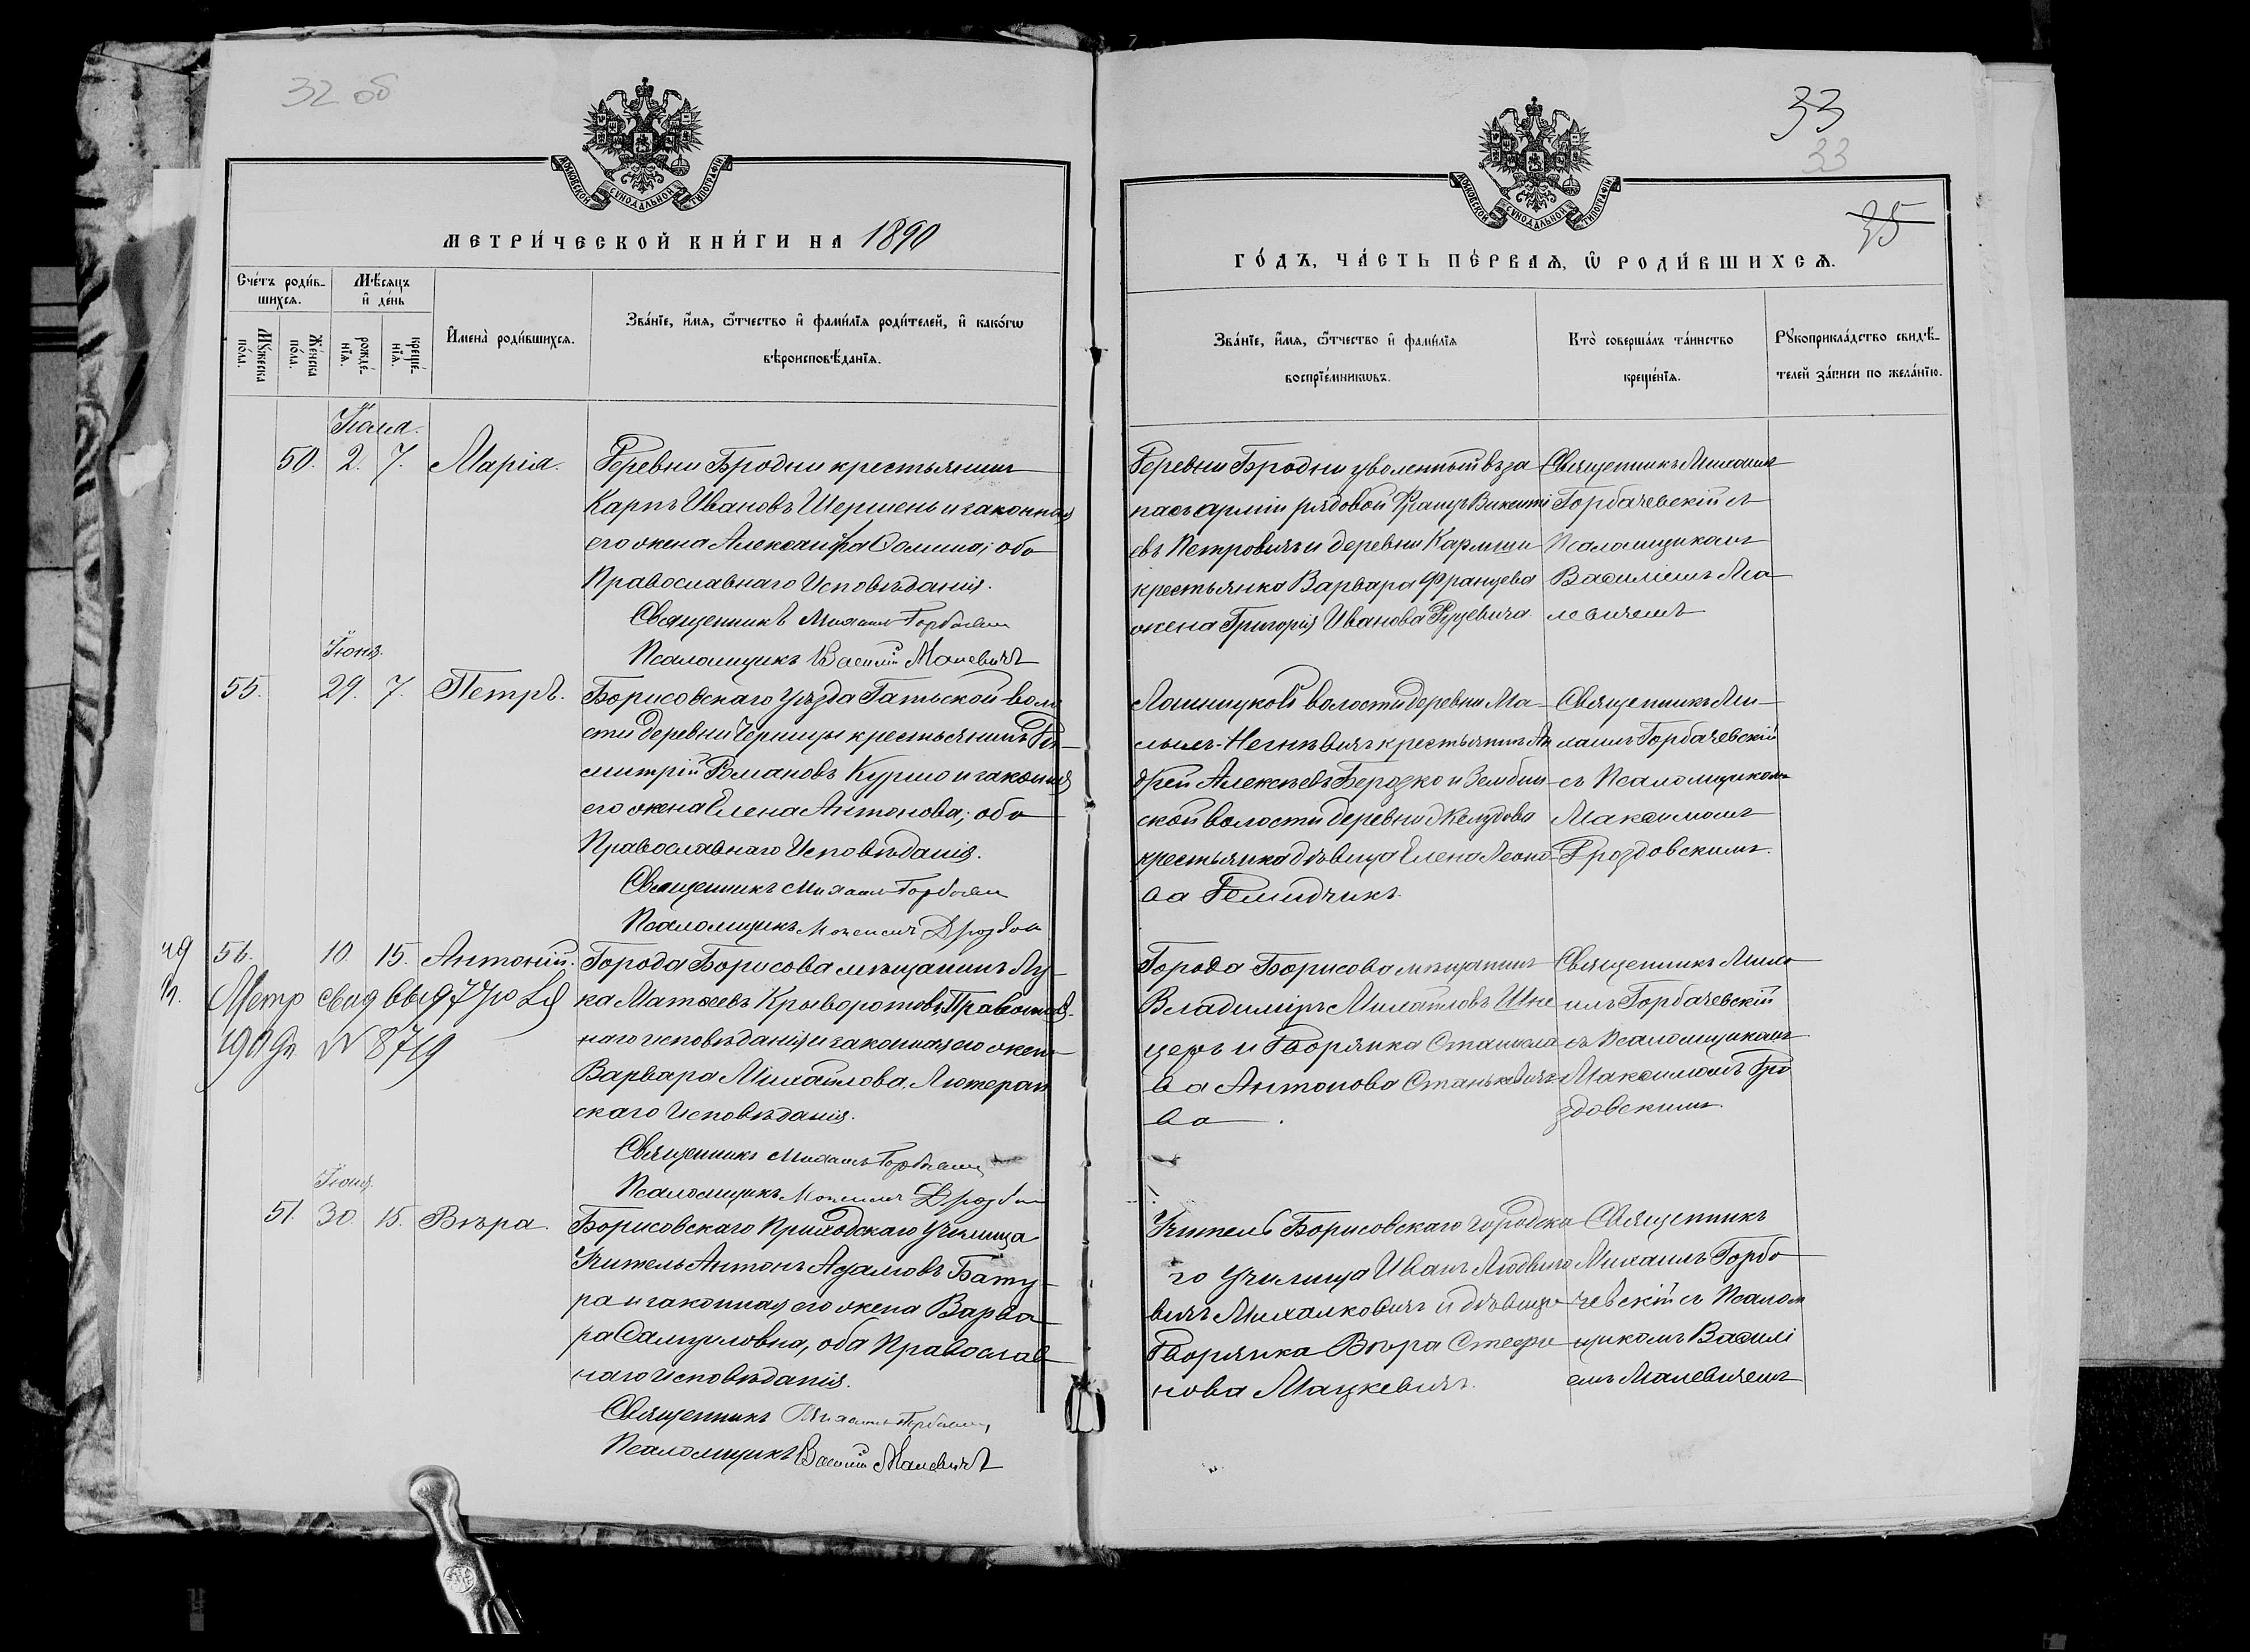 32 об
МОСКОВСКОЙ СѴНОДАЛЬНОЙ ТИПОГРАФІИ
МЕТРИ́ЧЕСКОЙ КНИ́ГИ НА 1890
Сче́тъ роди́в-
шихсѧ.
Мѣ́сѧцъ
и҆ де́нь
Мꙋ́жеска
по́ла.
Же́нска
по́ла.
рожде́-
нїѧ.
креще́-
нїѧ.
И҆мена̀ роди́вшихсѧ.
Зва́нїе, и҆́мѧ, ѻ҆́тчество и҆ фами́лїѧ роди́телей, и҆ како́гѡ
вѣроисповѣ́данїѧ.
Іюля.
50. 2. 7. Марія. Деревни Бродни крестьянинъ
Карпъ Ивановъ Шершень и законная
его жена Александра Фомина; оба
Православнаго Исповѣданія.
Священникъ Михаилъ Горбачевскій
Псаломщикъ Василій Малевичъ
Іюня.
55. 29. 7. Петръ. Борисовскаго Уѣзда Гатьской воло-
сти деревни Черницы крестьянинъ Ди-
митрій Романовъ Куршо и законная
его жена Елена Антонова; оба
Православнаго Исповѣданія.
Священникъ Михаилъ Горбачевскій
Псаломщикъ Максимъ Дроздов
56. 10. 15. Антоній. Города Борисова мѣщанинъ Лу-
ка Матѳеевъ Крыворотовъ, Православ-
наго исповѣданія и законная его жена
Варвара Михайлова, Лютеран-
скаго Исповѣданія.
Метр свид выд
№ 8719
Священникъ Михаилъ Горбачевскій
Псаломщикъ Максимъ Дроздов
Іюня.
51. 30. 15. Вѣра. Борисовскаго Приходскаго Училища
Учитель Антонъ Адамовъ Бату-
ра и законная его жена Варва-
ра Самуиловна, оба Православ-
наго исповѣданія.
Священникъ Михаилъ Горбачевскій
Псаломщикъ Василій Малевичъ
33
33
35
МОСКОВСКОЙ СѴНОДАЛЬНОЙ ТИПОГРАФІИ
ГО́ДЪ, ЧА́СТЬ ПЕ́РВАѦ, Ѡ҆ РОДИ́ВШИХСѦ.
Зва́нїе, и҆́мѧ, ѻ҆́тчество и҆ фами́лїѧ
воспрїе́мникѡвъ.
Кто̀ соверша́лъ та́инство
креще́нїѧ.
Рꙋкоприкла́дство свидѣ́-
телей за́писи по жела́нїю.
Деревни Бродни уволенный въ за-
пасъ арміи рядовой Францъ Викенті
евъ Петровичъ и деревни Кармши
крестьянка Варвара Францева
жена Григорія Иванова Руцевича
Священникъ Михаилъ
Горбачевскій съ
Псаломщикомъ
Василіемъ Ма-
левичемъ
Лошницкой волости деревни Ма-
лыхъ-Негновичъ крестьянинъ Ан
дрей Алексѣевъ Берозко и Зембин-
ской волости деревни Желудова
крестьянка дѣвица Елена Леоно-
ва Демидчикъ.
Священникъ Ми-
хаилъ Горбачевскій
съ Псаломщикомъ
Максимомъ
Дроздовскимъ.
Города Борисова мѣщанинъ
Владиміръ Михайловъ Шне
церъ и Дворянка Станисла
ва Антонова Станкевиче-
ва.
Священникъ Миха
илъ Горбачевскій
съ Псаломщикомъ
Максимомъ Дро
здовскимъ.
Учитель Борисовскаго городска
го Училища Иванъ Людвико
вичъ Михалковичъ и дѣвица
Дворянка Вѣра Стефа
нова Мацкевичъ.
Священникъ
Михаилъ Горба
чевскій съ Псалом
щикомъ Василі
емъ Малевичемъ